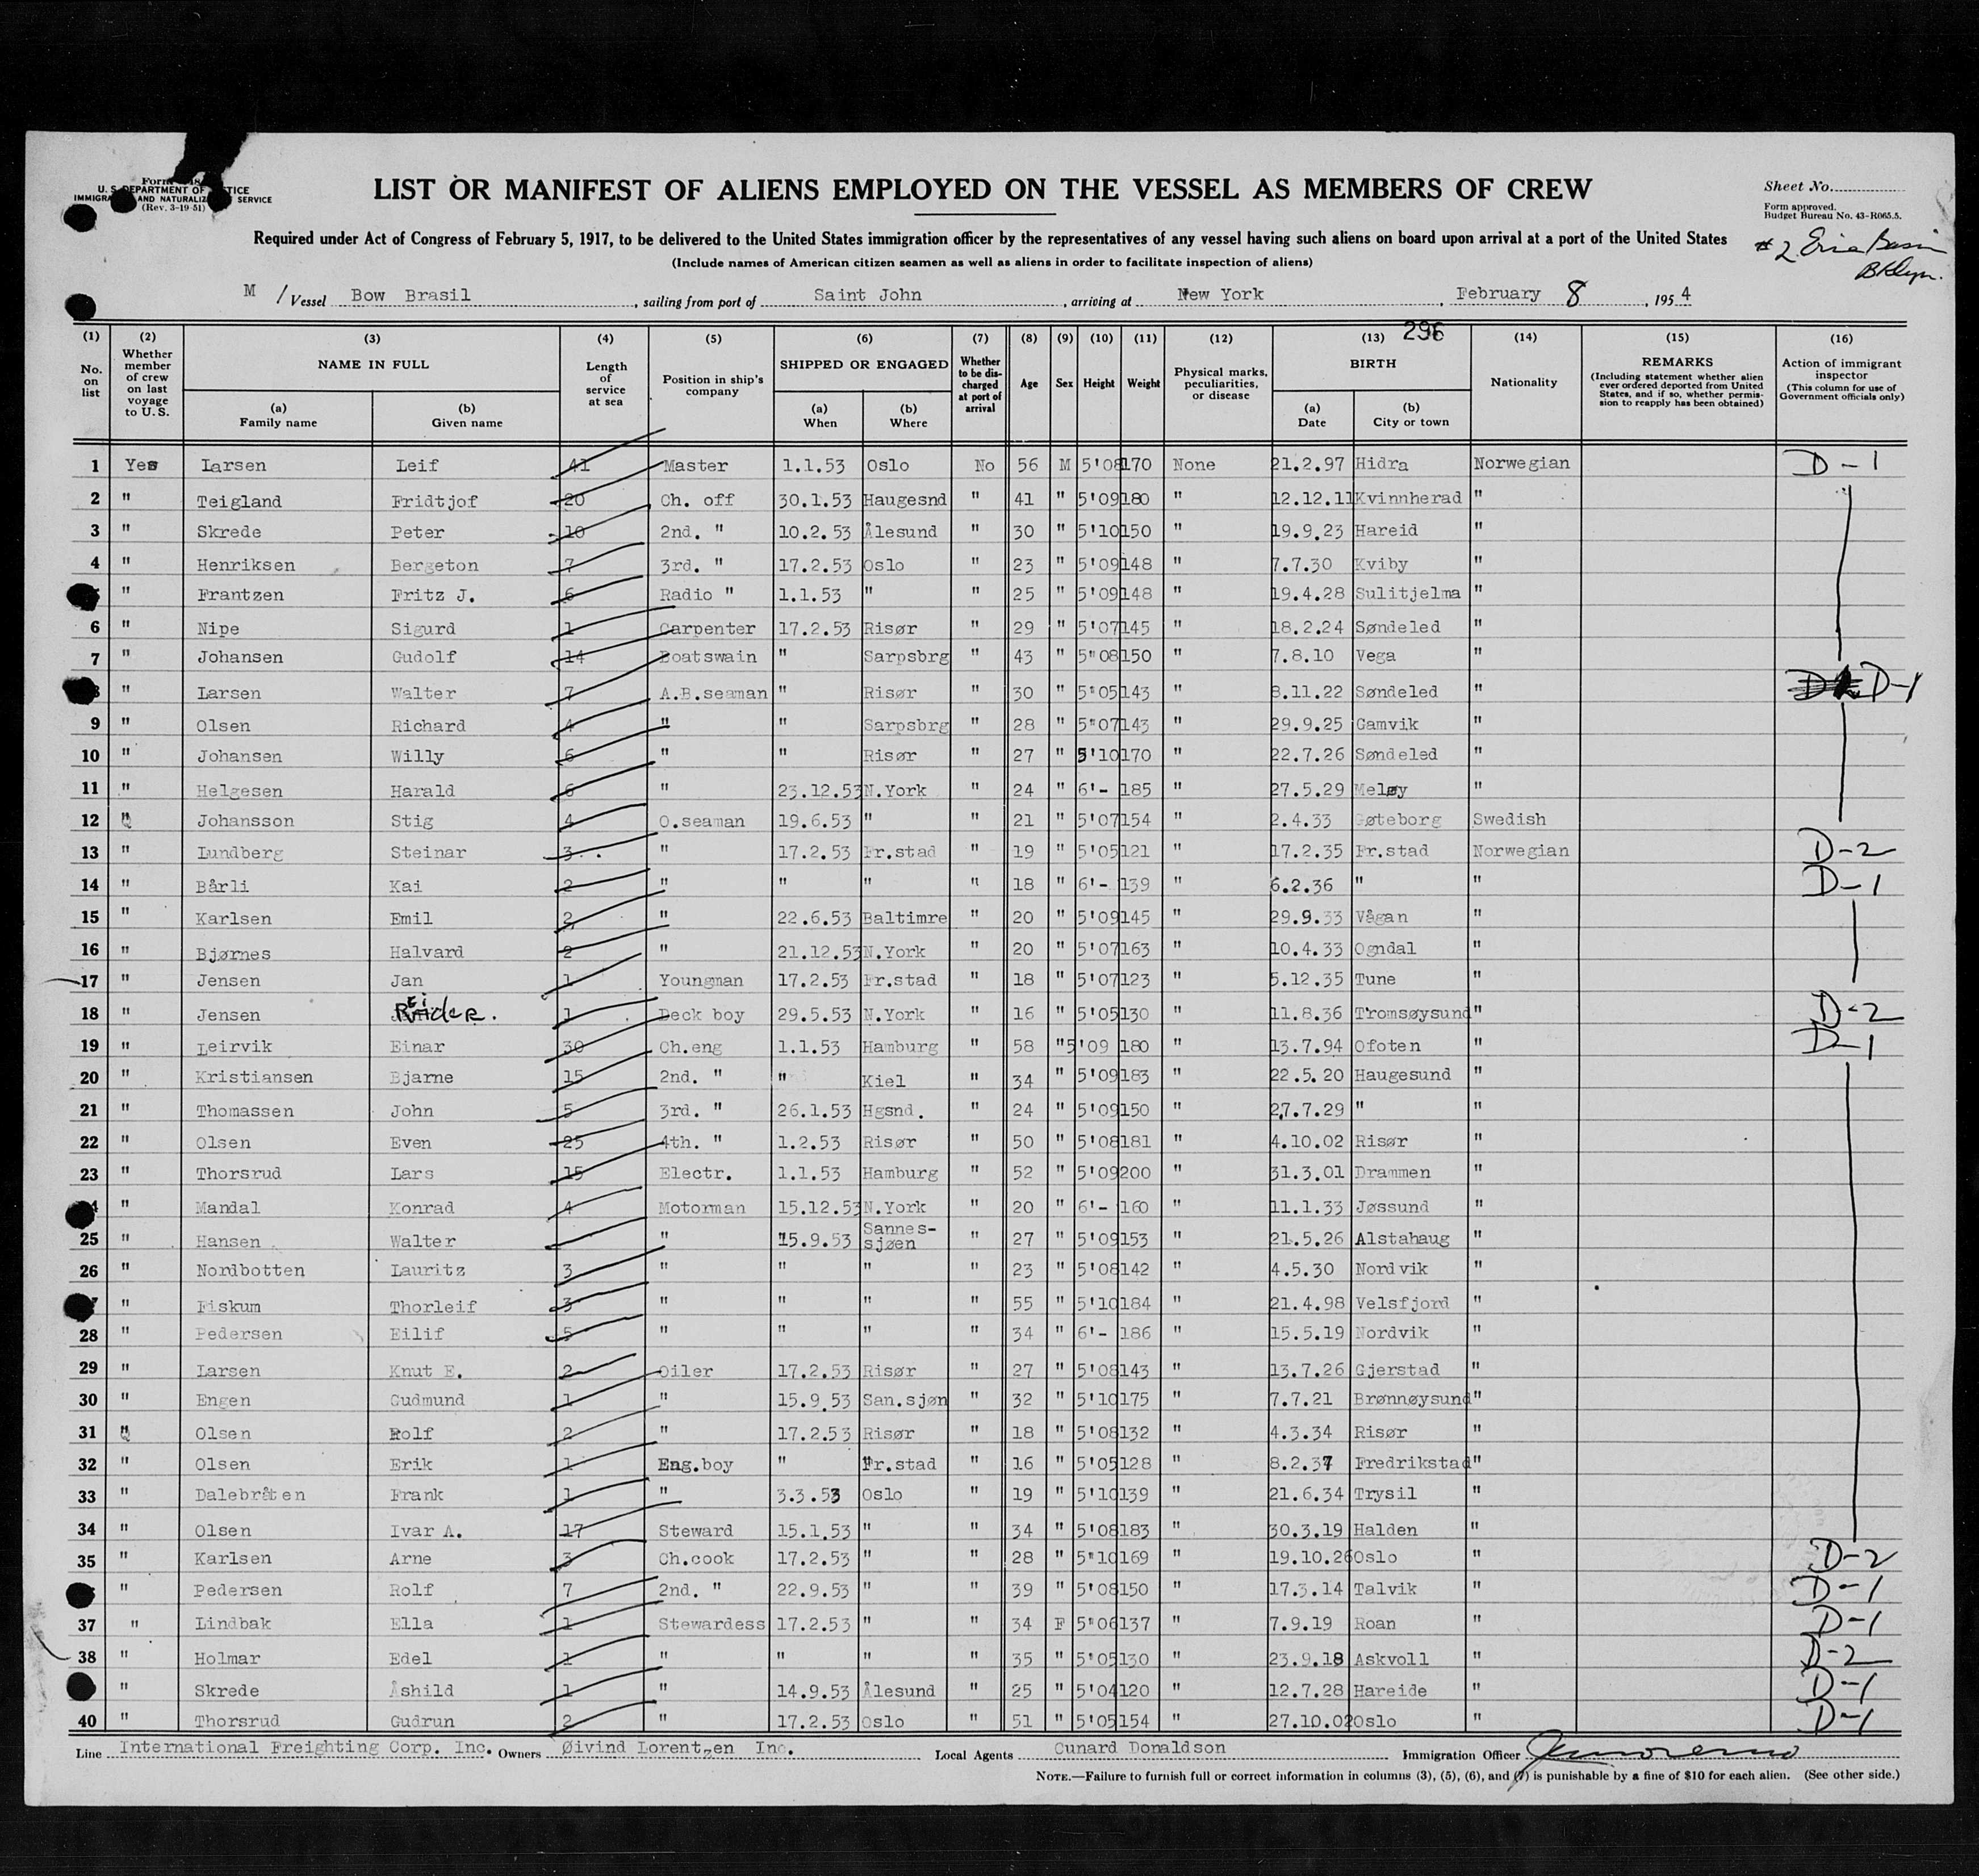 Form
U. S. DEPARTMENT OF JUSTICE
IMMIGRATION AND NATURALIZATION SERVICE
(Rev. 3-19-51)
LIST OR MANIFEST OF ALIENS EMPLOYED ON THE VESSEL AS MEMBERS OF CREW
Sheet No.
Form approved.
Budget Bureau No. 43-R065.5.
Required under Act of Congress of February 5, 1917, to be delivered to the United States immigration officer by the representatives of any vessel having such aliens on board upon arrival at a port of the United States
(Include names of American citizen seamen as well as aliens in order to facilitate inspection of aliens)
#2 Erie Basin
Bklyn.
M / Vessel Bow Brasil, sailing from port of Saint John, arriving at New York, February 8, 1954
296
(1) (2) (3) (4) (5) (6) (7) (8) (9) (10) (11) (12) (13) (14) (15) (16)
No. on list
Whether member of crew on last voyage to U. S.
NAME IN FULL
(a) Family name
(b) Given name
Length of service at sea
Position in ship's company
SHIPPED OR ENGAGED
(a) When
(b) Where
Whether to be discharged at port of arrival
Age
Sex
Height
Weight
Physical marks, peculiarities, or disease
BIRTH
(a) Date
(b) City or town
Nationality
REMARKS
(Including statement whether alien ever ordered deported from United States, and if so, whether permission to reapply has been obtained)
Action of immigrant inspector
(This column for use of Government officials only)
1 Yes Larsen Leif 41 Master 1.1.53 Oslo No 56 M 5'08 170 None 21.2.97 Hidra Norwegian D-1
2 " Teigland Fridtjof 20 Ch. off 30.1.53 Haugesnd " 41 " 5'09 180 " 12.12.11 Kvinnherad "
3 " Skrede Peter 10 2nd. " 10.2.53 Ålesund " 30 " 5'10 150 " 19.9.23 Hareid "
4 " Henriksen Bergeton 7 3rd. " 17.2.53 Oslo " 23 " 5'09 148 " 7.7.30 Kviby "
" Frantzen Fritz J. 6 Radio " 1.1.53 " " 25 " 5'09 148 " 19.4.28 Sulitjelma "
6 " Nipe Sigurd 1 Carpenter 17.2.53 Risør " 29 " 5'07 145 " 18.2.24 Søndeled "
7 " Johansen Gudolf 14 Boatswain " Sarpsbrg " 43 " 5"08 150 " 7.8.10 Vega "
8 " Larsen Walter 7 A.B.seaman " Risør " 30 " 5'05 143 " 8.11.22 Søndeled " D-1
9 " Olsen Richard 4 " " Sarpsbrg " 28 " 5"07 143 " 29.9.25 Gamvik "
10 " Johansen Willy 6 " " Risør " 27 " 5'10 170 " 22.7.26 Søndeled "
11 " Helgesen Harald 6 " 23.12.53 N.York " 24 " 6'- 185 " 27.5.29 Meløy "
12 " Johansson Stig 4 O.seaman 19.6.53 " " 21 " 5'07 154 " 2.4.33 Gøteborg Swedish
13 " Lundberg Steinar 3 " 17.2.53 Fr.stad " 19 " 5'05 121 " 17.2.35 Fr.stad Norwegian D-2
14 " Bårli Kai 2 " " " " 18 " 6'- 139 " 6.2.36 " " D-1
15 " Karlsen Emil 2 " 22.6.53 Baltimre " 20 " 5'09 145 " 29.9.33 Vågan "
16 " Bjørnes Halvard 2 " 21.12.53 N.York " 20 " 5'07 163 " 10.4.33 Ogndal "
17 " Jensen Jan 1 Youngman 17.2.53 Fr.stad " 18 " 5'07 123 " 5.12.35 Tune "
18 " Jensen Reider. 1 Deck boy 29.5.53 N.York " 16 " 5'05 130 " 11.8.36 Tromsøysund " D-2
19 " Leirvik Einar 30 Ch.eng 1.1.53 Hamburg " 58 " 5'09 180 " 13.7.94 Ofoten " D-1
20 " Kristiansen Bjarne 15 2nd. " " Kiel " 34 " 5'09 183 " 22.5.20 Haugesund "
21 " Thomassen John 5 3rd. " 26.1.53 Hgsnd. " 24 " 5'09 150 " 27.7.29 " "
22 " Olsen Even 25 4th. " 1.2.53 Risør " 50 " 5'08 181 " 4.10.02 Risør "
23 " Thorsrud Lars 15 Electr. 1.1.53 Hamburg " 52 " 5'09 200 " 31.3.01 Drammen "
" Mandal Konrad 4 Motorman 15.12.53 N.York " 20 " 6'- 160 " 11.1.33 Jøssund "
25 " Hansen Walter " 15.9.53 Sannes-sjøen " 27 " 5'09 153 " 21.5.26 Alstahaug "
26 " Nordbotten Lauritz 3 " " " " 23 " 5'08 142 " 4.5.30 Nordvik "
" Fiskum Thorleif 3 " " " " 55 " 5'10 184 " 21.4.98 Velsfjord "
28 " Pedersen Eilif 5 " " " " 34 " 6'- 186 " 15.5.19 Nordvik "
29 " Larsen Knut E. 2 Oiler 17.2.53 Risør " 27 " 5'08 143 " 13.7.26 Gjerstad "
30 " Engen Gudmund 1 " 15.9.53 San.sjøn " 32 " 5'10 175 " 7.7.21 Brønnøysund "
31 " Olsen Rolf 2 " 17.2.53 Risør " 18 " 5'08 132 " 4.3.34 Risør "
32 " Olsen Erik 1 Eng.boy " Fr.stad " 16 " 5'05 128 " 8.2.37 Fredrikstad "
33 " Dalebråten Frank 1 " 3.3.53 Oslo " 19 " 5'10 139 " 21.6.34 Trysil "
34 " Olsen Ivar A. 17 Steward 15.1.53 " " 34 " 5'08 183 " 30.3.19 Halden "
35 " Karlsen Arne 3 Ch.cook 17.2.53 " " 28 " 5"10 169 " 19.10.26 Oslo " D-2
" Pedersen Rolf 7 2nd. " 22.9.53 " " 39 " 5'08 150 " 17.3.14 Talvik " D-1
37 " Lindbak Ella 1 Stewardess 17.2.53 " " 34 F 5"06 137 " 7.9.19 Roan " D-1
38 " Holmar Edel 1 " " " " 35 " 5'05 130 " 23.9.18 Askvoll " D-2
" Skrede Åshild 1 " 14.9.53 Ålesund " 25 " 5'04 120 " 12.7.28 Hareide " D-1
40 " Thorsrud Gudrun 2 " 17.2.53 Oslo " 51 " 5'05 154 " 27.10.02 Oslo " D-1
Line International Freighting Corp. Inc. Owners Øivind Lorentzen Inc. Local Agents Cunard Donaldson Immigration Officer
NOTE.—Failure to furnish full or correct information in columns (3), (5), (6), and (7) is punishable by a fine of $10 for each alien. (See other side.)